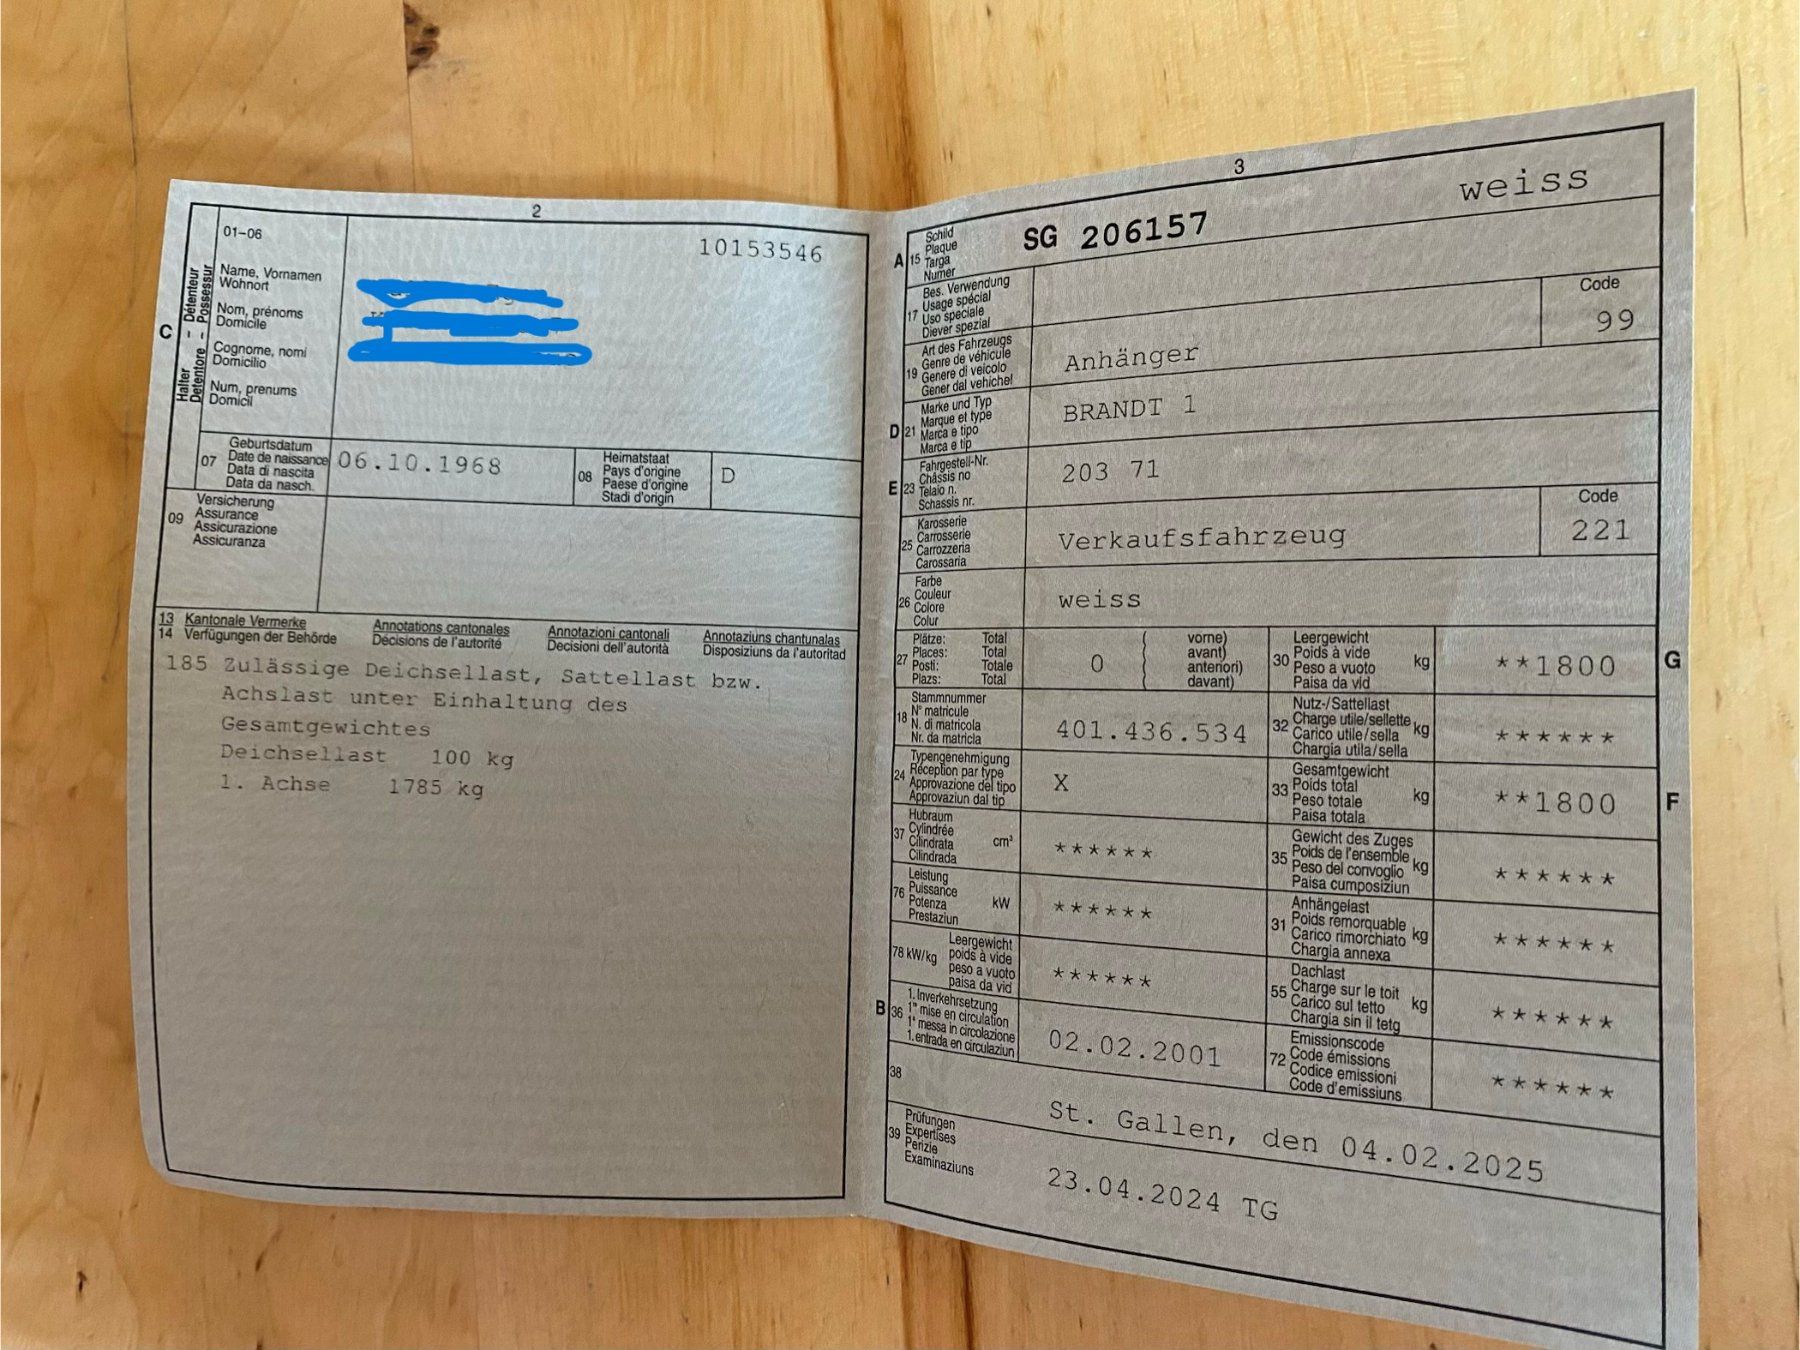 2
01-06
10153546
C
Halter - Détenteur
Detentore - Possessur
Name, Vornamen
Wohnort
Nom, prénoms
Domicile
Cognome, nomi
Domicilio
Num, prenums
Domicil
07
Geburtsdatum
Date de naissance
Data di nascita
Data da nasch.
06.10.1968
08
Heimatstaat
Pays d'origine
Paese d'origine
Stadi d'origin
D
09
Versicherung
Assurance
Assicurazione
Assicuranza
13 Kantonale Vermerke Annotations cantonales Annotazioni cantonali Annotaziuns chantunalas
14 Verfügungen der Behörde Décisions de l'autorité Decisioni dell'autorità Disposiziuns da l'autoritad
185 Zulässige Deichsellast, Sattellast bzw.
Achslast unter Einhaltung des
Gesamtgewichtes
Deichsellast 100 kg
1. Achse 1785 kg
3
weiss
A 15
Schild
Plaque
Targa
Numer
SG 206157
17
Bes. Verwendung
Usage spécial
Uso speciale
Diever spezial
Code
99
19
Art des Fahrzeugs
Genre de véhicule
Genere di veicolo
Gener dal vehichel
Anhänger
D 21
Marke und Typ
Marque et type
Marca e tipo
Marca e tip
BRANDT 1
E 23
Fahrgestell-Nr.
Châssis no
Telaio n.
Schassis nr.
203 71
25
Karosserie
Carrosserie
Carrozzeria
Carossaria
Verkaufsfahrzeug
Code
221
26
Farbe
Couleur
Colore
Colur
weiss
27
Plätze: Total
Places: Total
Posti: Totale
Plazs: Total
0
( vorne)
avant)
anteriori)
( davant)
30
Leergewicht
Poids à vide
Peso a vuoto
Paisa da vid
kg
**1800
G
18
Stammnummer
N° matricule
N. di matricola
Nr. da matricla
401.436.534
32
Nutz-/Sattellast
Charge utile/sellette
Carico utile/sella
Chargia utila/sella
kg
******
24
Typengenehmigung
Réception par type
Approvazione del tipo
Approvaziun dal tip
X
33
Gesamtgewicht
Poids total
Peso totale
Paisa totala
kg
**1800
F
37
Hubraum
Cylindrée
Cilindrata
Cilindrada
cm³
******
35
Gewicht des Zuges
Poids de l'ensemble
Peso del convoglio
Paisa cumposiziun
kg
******
76
Leistung
Puissance
Potenza
Prestaziun
kW
******
31
Anhängelast
Poids remorquable
Carico rimorchiato
Chargia annexa
kg
******
78 kW/kg
Leergewicht
poids à vide
peso a vuoto
paisa da vid
******
55
Dachlast
Charge sur le toit
Carico sul tetto
Chargia sin il tetg
kg
******
B 36
1. Inverkehrsetzung
1re mise en circulation
1a messa in circolazione
1. entrada en circulaziun
02.02.2001
72
Emissionscode
Code émissions
Codice emissioni
Code d'emissiuns
******
38
St. Gallen, den 04.02.2025
39
Prüfungen
Expertises
Perizie
Examinaziuns
23.04.2024 TG